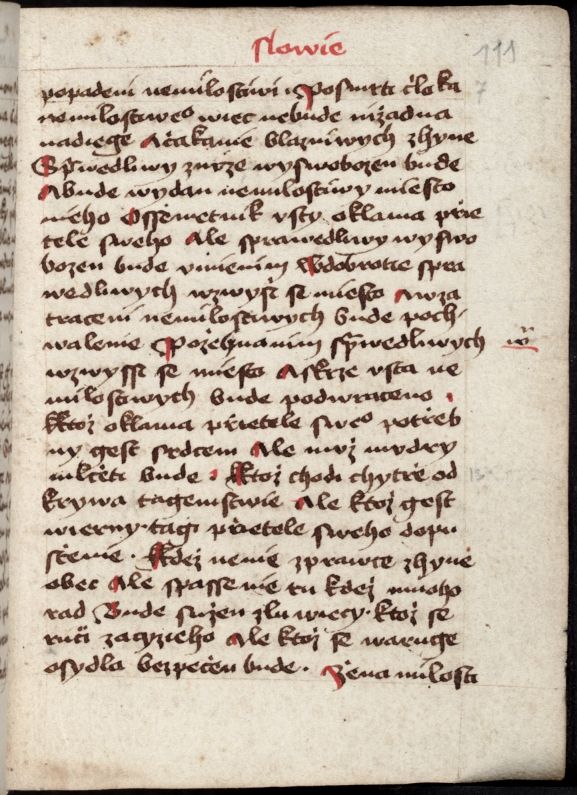 slowie
111
popadeni nemilostiwi. Posmrti čloka
7
nemilostiweo wiec nebude nižadna
nadiegě Ačakanie blazniwych zhyne
Sprwedliwy zuzže wyswobozen bude
Abude wydan nemilostiwy miesto
nieho Ossemetnik vsty oklama přie
tele sweho Ale sprawedliwy wyswo
bozen bude vmienim Wdobrotie spra
wedliwych wzwyší se miesto Awza
traceni nemilostiwych bude poch,
walenie Požehnanim sprwedliwych
wzwyssi se miesto Askrze vsta ne
milostiwych bude podwraceno .
Ktož oklama přietele sweo potřeb
ny gest srdcem Ale muž mudry
mlčeti bude . Ktož chodi chytřě od
krywa tagemstwie Ale ktož gest
13
wierny. tagi přietele sweho dopu
štěnie . Kdež nenie zprawce zhyne
obec Ale spassenie tu kdež mnoho
rad Bude sužen zlu wiecy. ktož se
ručí zacyzieho Ale ktož se waruge
osydla bezpečen bude . Žena milosti